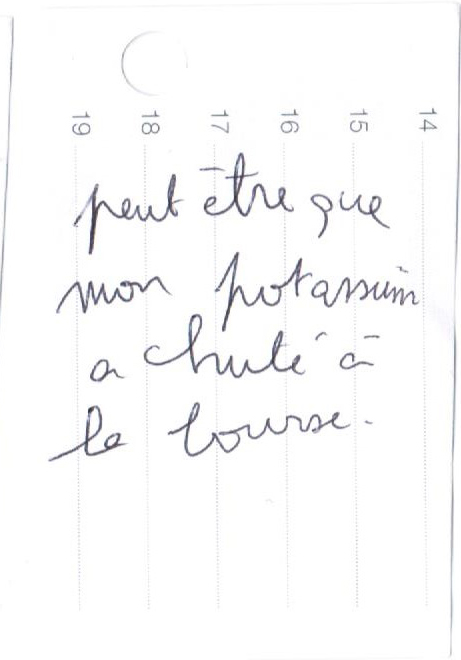 19 18 17 16 15 14
peut être que
mon potassium
a chuté à
la bourse.